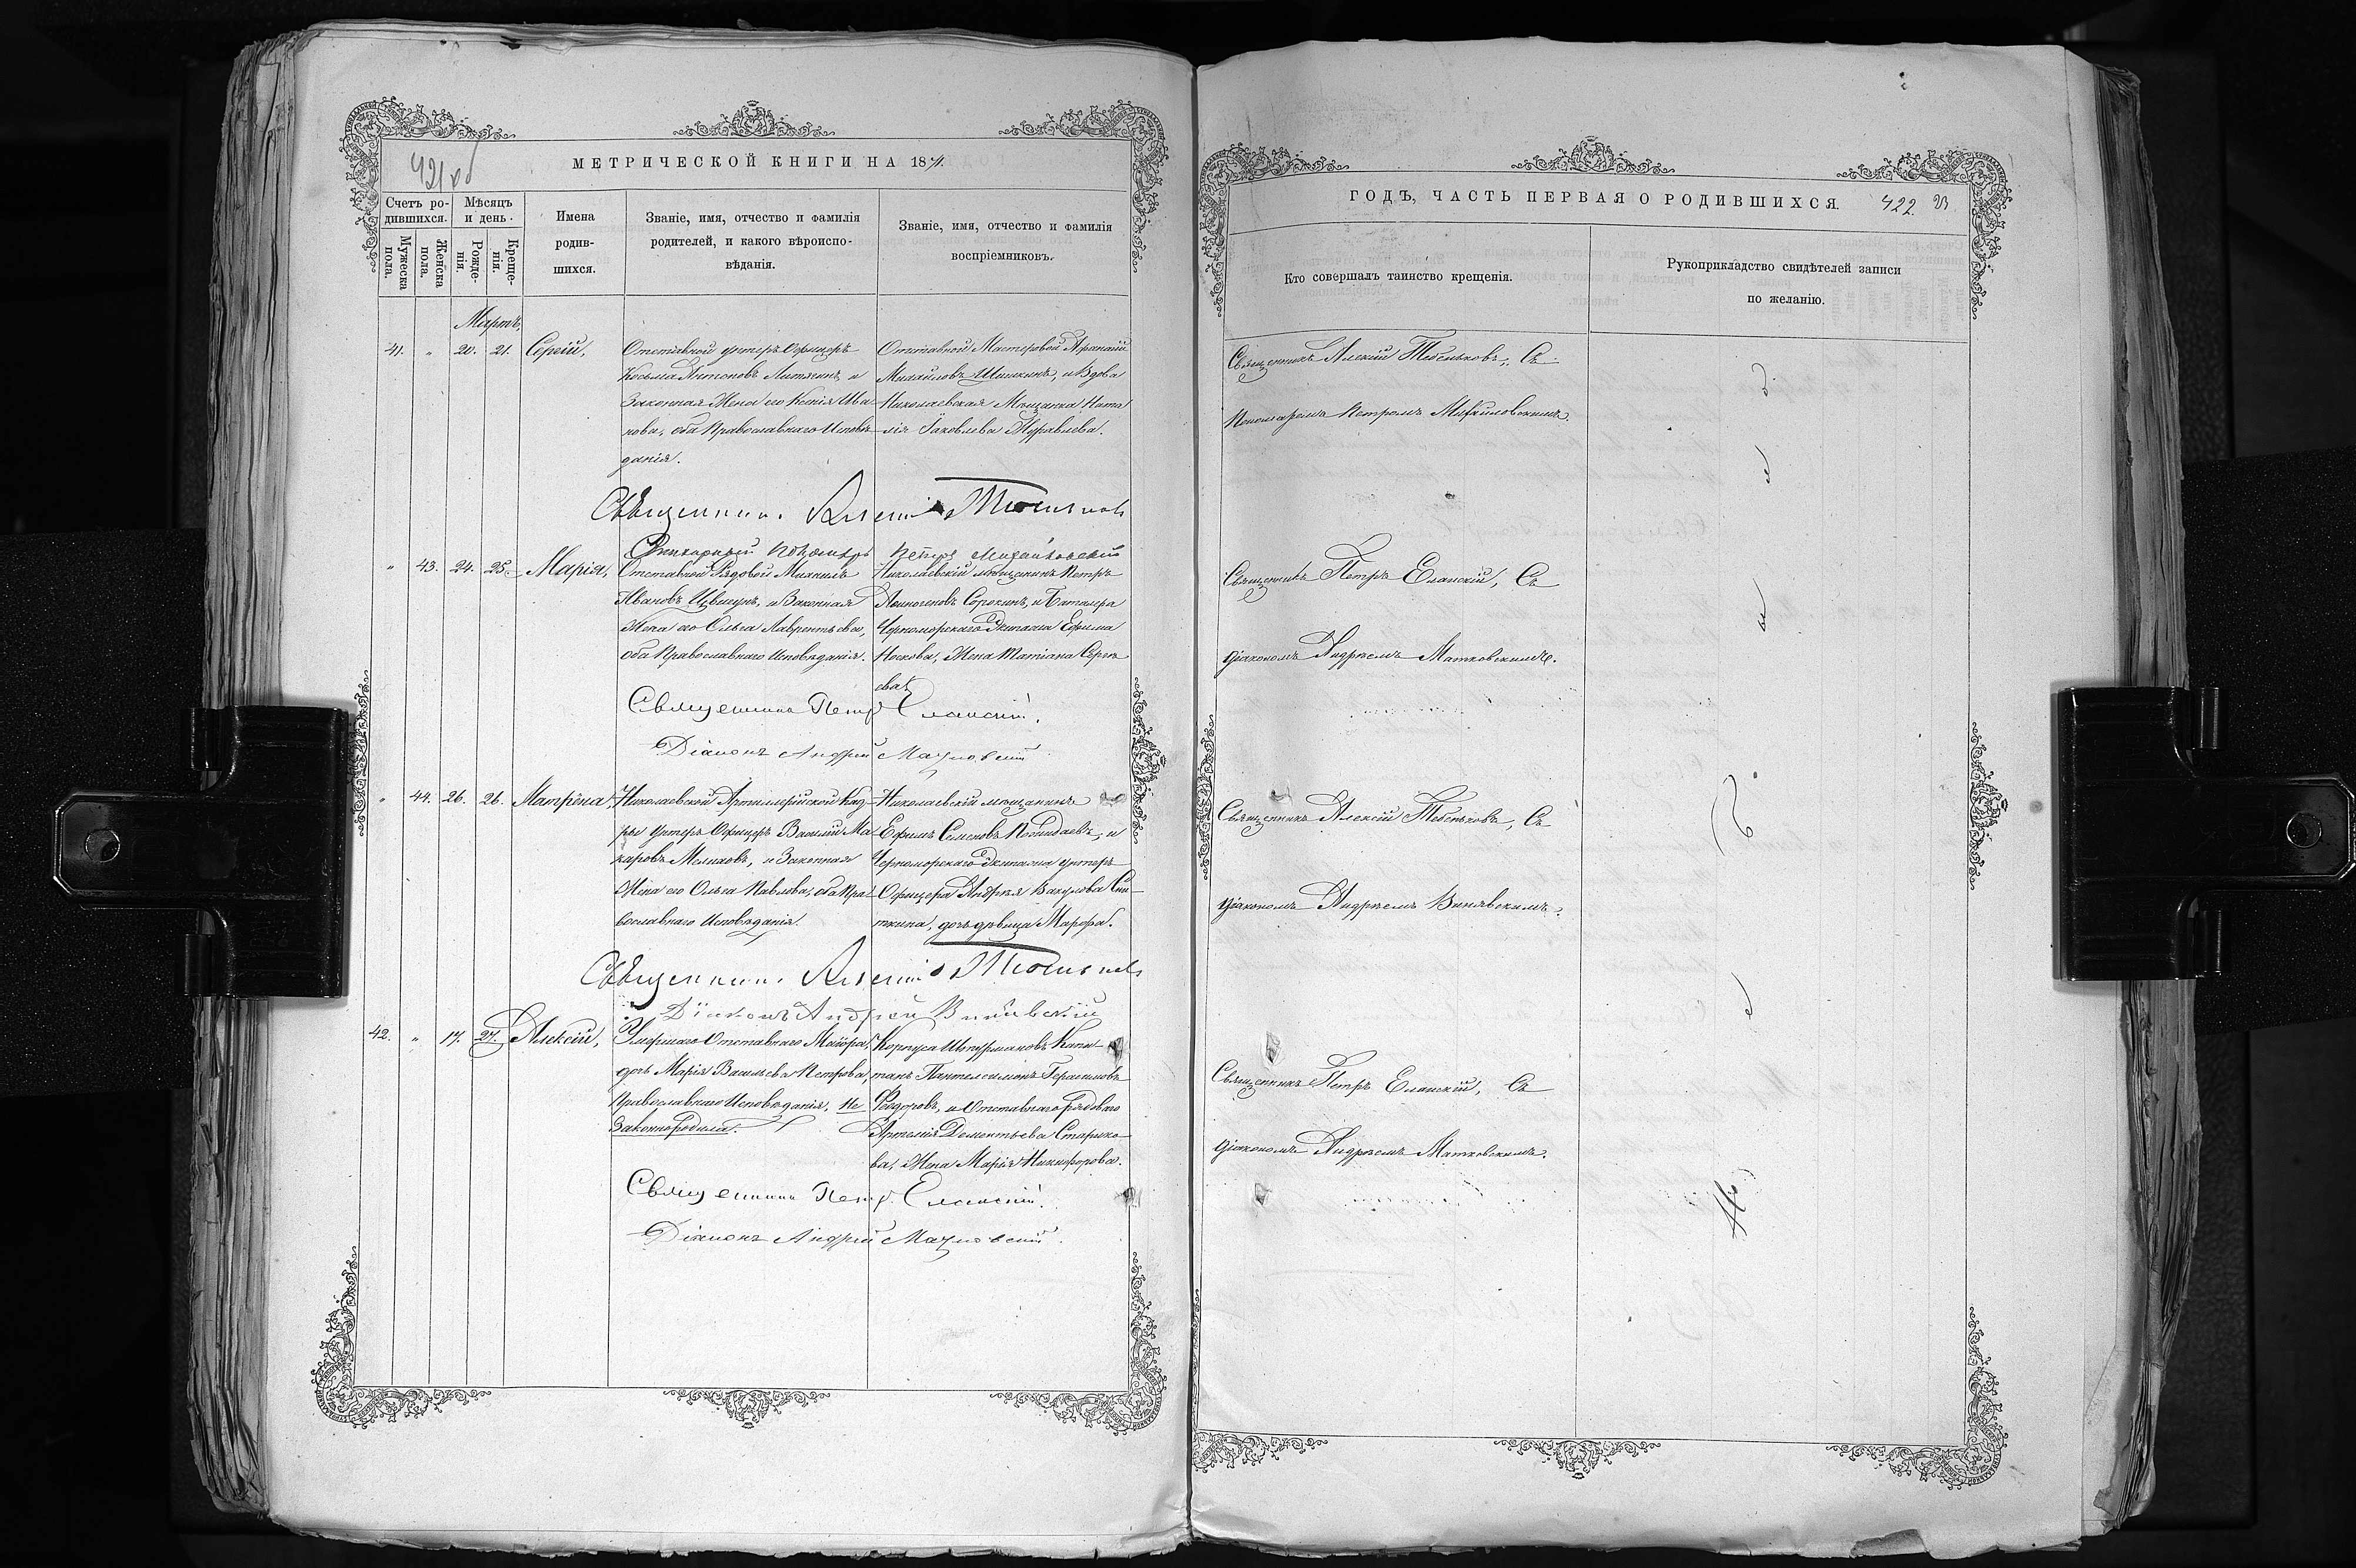 421 об
МЕТРИЧЕСКОЙ КНИГИ НА 1871.
Счетъ ро-
дившихся.
Мужеска
пола.
Женска
пола.
Мѣсяцъ
и день.
Рожде-
нія.
Креще-
нія.
Имена
родив-
шихся.
Званіе, имя, отчество и фамилія
родителей, и какого вѣроиспо-
вѣданія.
Званіе, имя, отчество и фамилія
воспріемниковъ.
Мартъ,
41. " 20. 21. Сергій,
Отставной унтеръ Офицеръ
Косьма Антоновъ и
Законная Жена его Ксенія Ива-
нова, оба Православнаго Исповѣ-
данія.
Отставной Мастеровой Афанасій
Михайловъ Шишкинъ, и Вдова
Николаевская Мѣщанка Ната-
лія Іаковлева Журавлева.
Священникъ Алексій
Пономарь Петръ Михайловскій
" 43. 24. 25. Марія,
Отставной Рядовой Михаилъ
Ивановъ и Законная
Жена его Ольга Лаврентьева,
оба Православнаго Исповѣданія.
Николаевскій мѣщанинъ Петръ
Сорокинъ, и Баталера
Черноморскаго Экипажа Ефима
Носкова, Жена Татіана Серге-
ева.
Священникъ Петръ Еланскій.
Діаконъ Андрей Матковскій
" 44. 26. 26. Матрона,
Николаевской Артиллерійской
унтеръ Офицеръ Василій Ма-
каровъ Мелиховъ, и Законная
Жена его Ольга Павлова, оба Пра-
вославнаго Исповѣданія.
Николаевскій мѣщанинъ
Ефимъ Семеновъ и
Черноморскаго Экипажа унтеръ
Офицера Андрея Вакулова
дочь дѣвица Марфа.
Священникъ Алексій
Діаконъ Андрей Винявскій
42. " 17. 27. Алексій,
Умершаго Отставнаго Маіора,
дочь Марія Васильева Петрова,
Православнаго Исповѣданія, Не
Законнородила.
Корпуса Штурмановъ Капи-
танъ Пантелеимонъ Герасимовъ
Федоровъ, и Отставнаго рядоваго
Артемія Дементьева Старико-
ва, Жена Марія Никифорова.
Священникъ Петръ Еланскій.
Діаконъ Андрей Матковскій.
ГОДЪ, ЧАСТЬ ПЕРВАЯ О РОДИВШИХСЯ.
422.
23
Кто совершалъ таинство крещенія.
Рукоприкладство свидѣтелей записи
по желанію.
Священникъ Алексій Съ
Пономаремъ Петромъ Михайловскимъ.
Священникъ Петръ Еланскій, Съ
Діакономъ Андреемъ Матковскимъ.
Священникъ Алексій Съ
Діакономъ Андреемъ Винявскимъ.
Священникъ Петръ Еланскій, Съ
Діакономъ Андреемъ Матковскимъ.